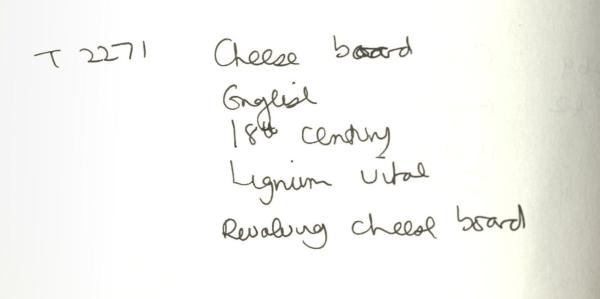 T 2271 Cheese board
English
18th century
Lignum vitae
Revolving cheese board